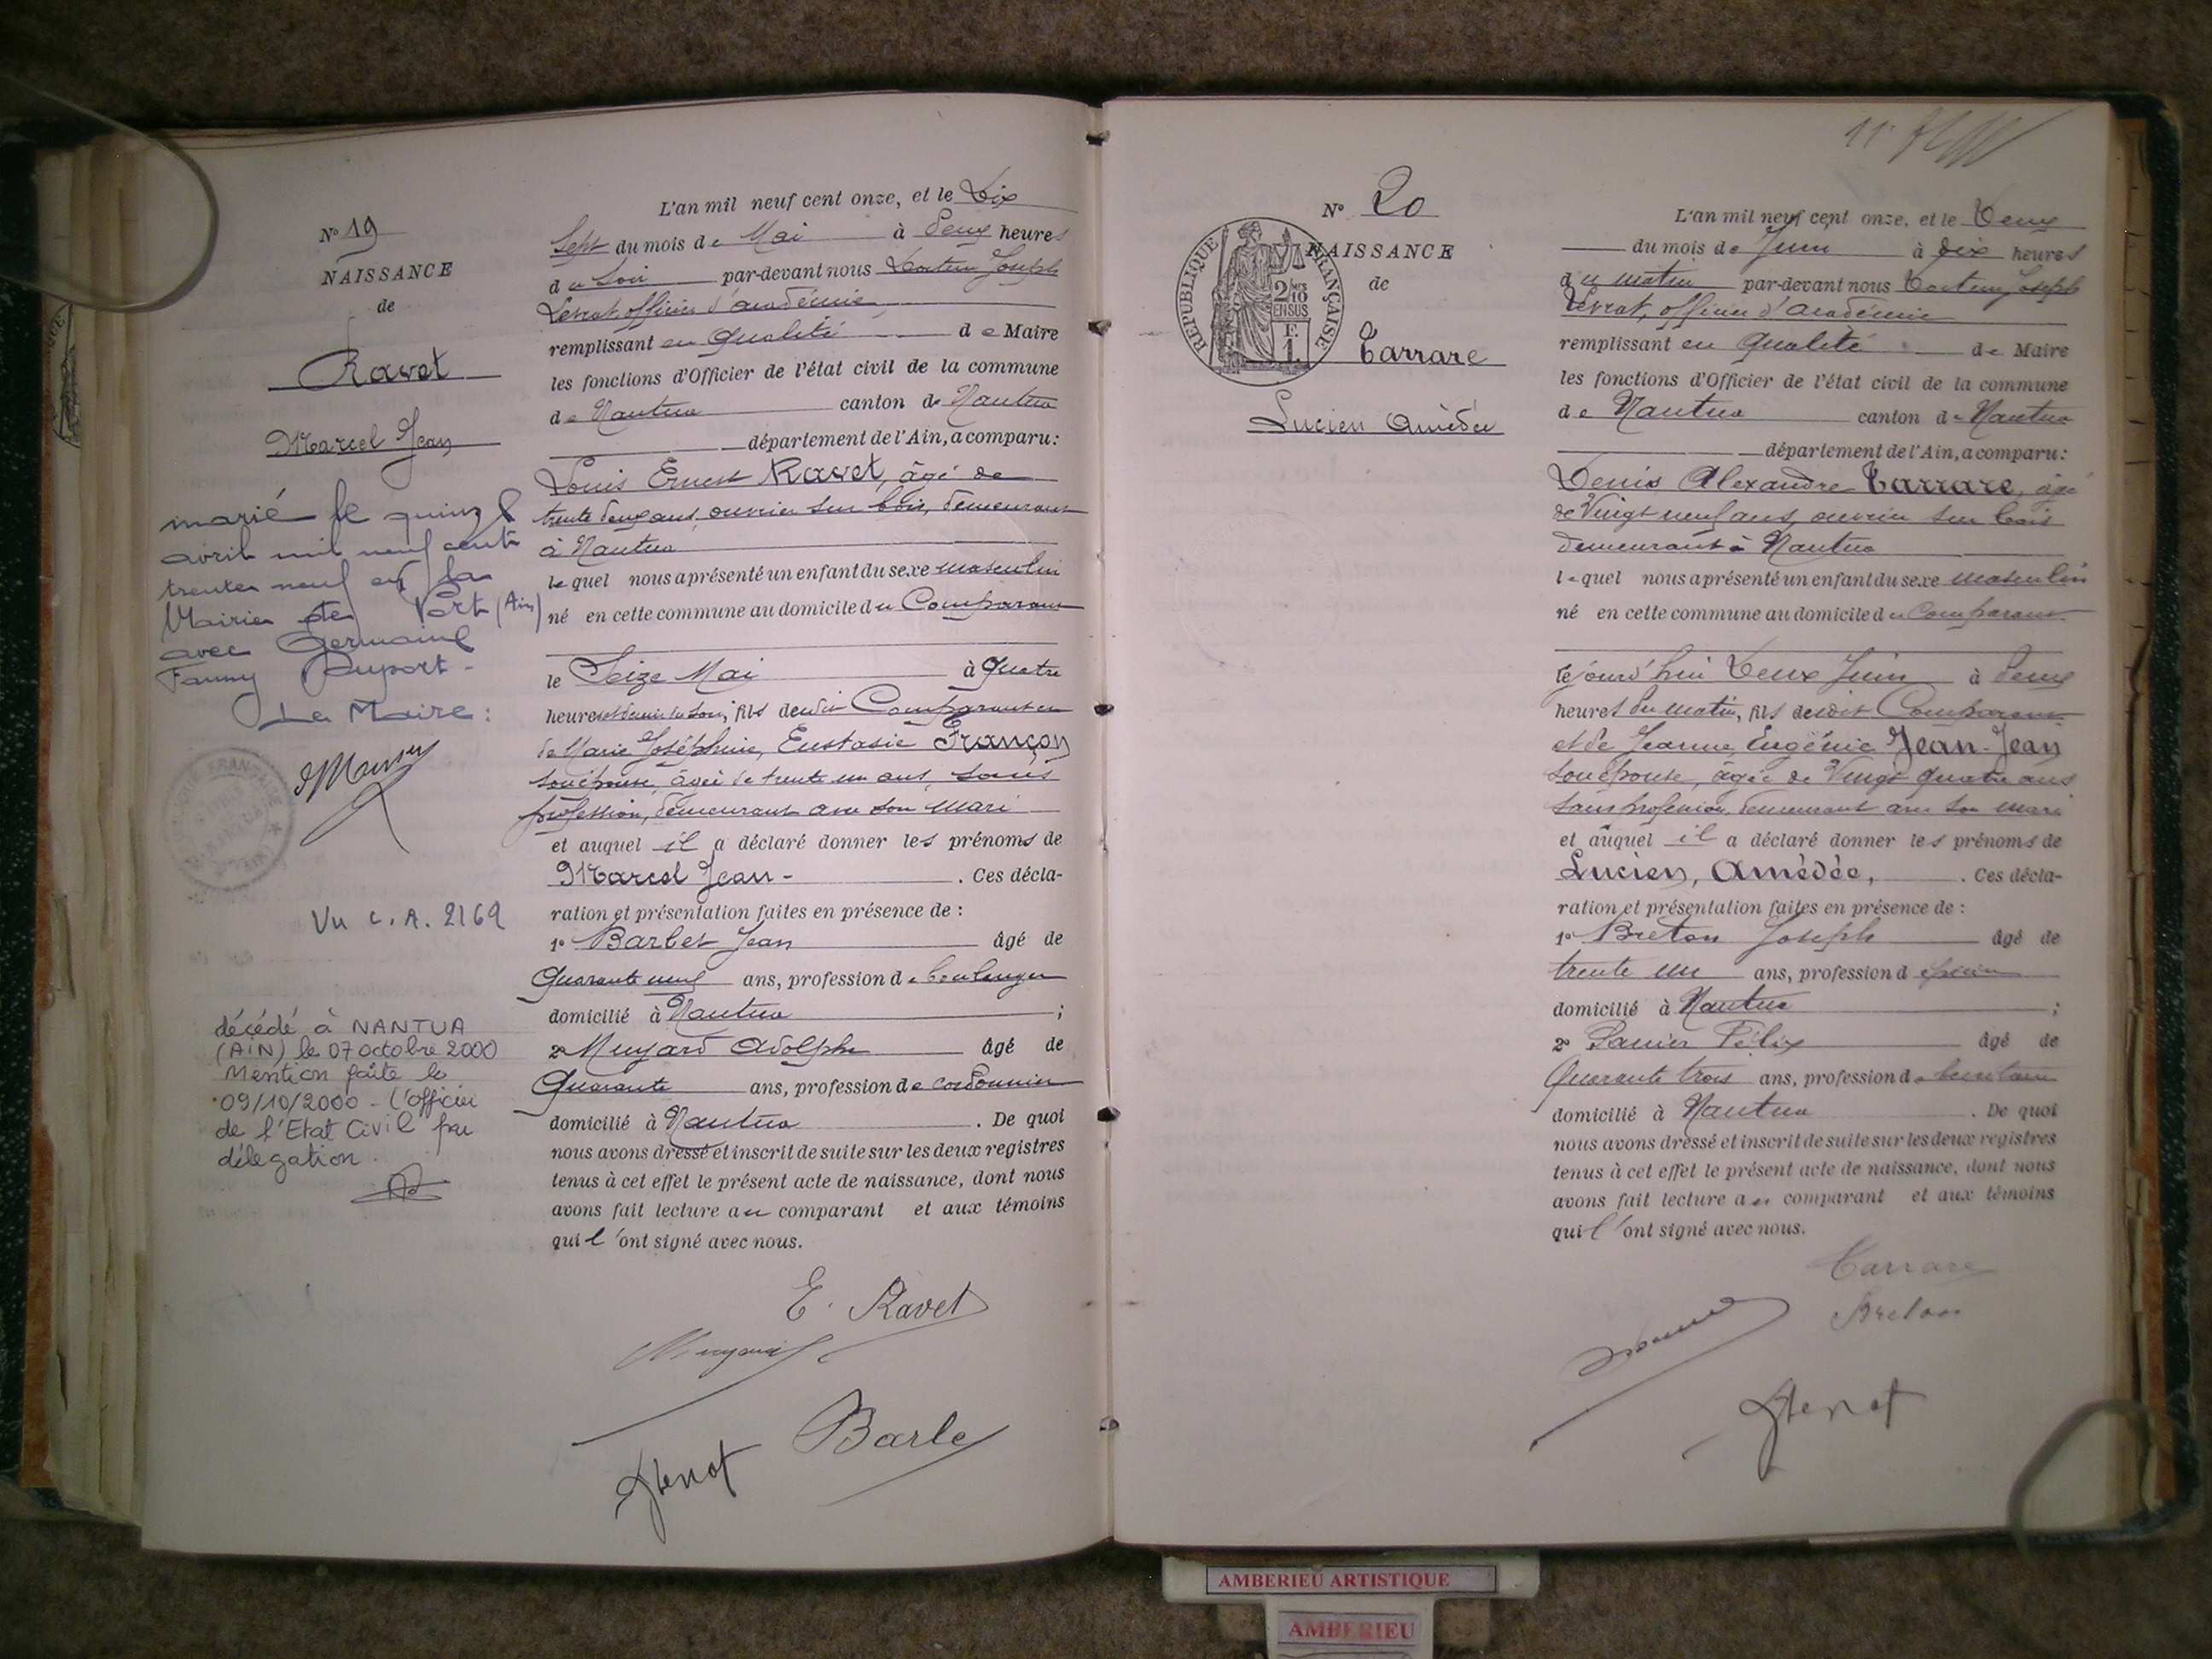 N° 19
NAISSANCE
de
Ravet
Marcel Jean
marié le quinze
avril mil neuf cent
trente neuf en la
Mairie de Port (Ain)
avec Germaine
Fanny Duport -
Le Maire :
Vu C.A. 2169
décédé à NANTUA
(AIN) le 07 octobre 2000
Mention faite le
09/10/2000 - L'officier
de l'Etat Civil par
délégation.
L'an mil neuf cent onze, et le Dix
Sept du mois de Mai à deux heures
du Soir par-devant nous Docteur Joseph
Levrat, officier d'académie
remplissant en qualité de Maire
les fonctions d'Officier de l'état civil de la commune
de Nantua canton de Nantua
département de l'Ain, a comparu :
Louis Ernest Ravet, âgé de
trente deux ans, ouvrier sur bois, demeurant
à Nantua
lequel nous a présenté un enfant du sexe masculin
né en cette commune au domicile du Comparant
le Seize Mai à quatre
heures et demie du soir, fils dudit Comparant et
de Marie Joséphine, Eustasie Françon
son épouse, âgée de trente un ans, sans
profession, demeurant avec son mari
et auquel il a déclaré donner les prénoms de
Marcel Jean - . Ces décla-
ration et présentation faites en présence de :
1° Barlet Jean âgé de
Quarante neuf ans, profession de boulanger
domicilié à Nantua ;
2° Muyard Adolphe âgé de
Quarante ans, profession de cordonnier
domicilié à Nantua . De quoi
nous avons dressé et inscrit de suite sur les deux registres
tenus à cet effet le présent acte de naissance, dont nous
avons fait lecture au comparant et aux témoins
qui l'ont signé avec nous.
E. Ravet
Muyard
Barle
N° 20
NAISSANCE
de
REPUBLIQUE FRANÇAISE
2/10
EN SUS
F.
1
Carrare
Lucien Amédée
L'an mil neuf cent onze, et le Deux
du mois de Juin à dix heures
du matin par-devant nous Docteur Joseph
Levrat, officier d'académie
remplissant en qualité de Maire
les fonctions d'Officier de l'état civil de la commune
de Nantua canton de Nantua
département de l'Ain, a comparu :
Denis Alexandre Carrare, âgé
de Vingt neuf ans, ouvrier sur bois
demeurant à Nantua
lequel nous a présenté un enfant du sexe masculin
né en cette commune au domicile du Comparant
le jourd'hui Deux Juin à deux
heures du matin, fils dudit Comparant
et de Jeanne Eugénie Jean-Jean
son épouse, âgée de Vingt quatre ans
sans profession, demeurant avec son mari
et auquel il a déclaré donner les prénoms de
Lucien, Amédée, . Ces décla-
ration et présentation faites en présence de :
1° Breton Joseph âgé de
trente un ans, profession d'épicier
domicilié à Nantua ;
2° Félix âgé de
Quarante trois ans, profession de
domicilié à Nantua . De quoi
nous avons dressé et inscrit de suite sur les deux registres
tenus à cet effet le présent acte de naissance, dont nous
avons fait lecture au comparant et aux témoins
qui l'ont signé avec nous.
Carrare
Breton
AMBERIEU ARTISTIQUE
AMBERIEU